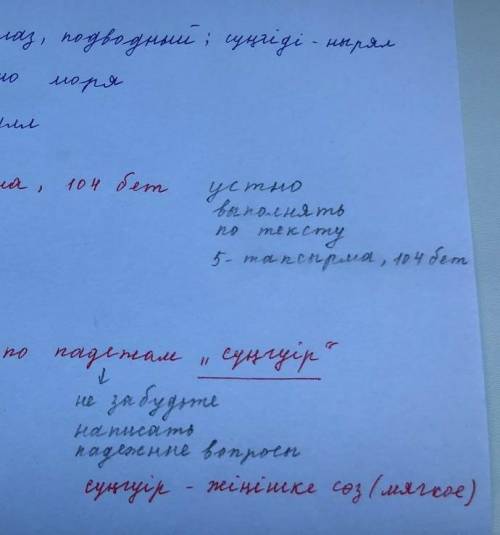 лаз, подводный; сүңгіді - нырял
но моря
ма, 104 бет устно
выполнять
по тексту
5 - тапсырма, 104 бет
по падежам „сүңгуір“
не забудьте
написать
падежные вопросы
сүңгуір - жіңішке сөз (мягкое)